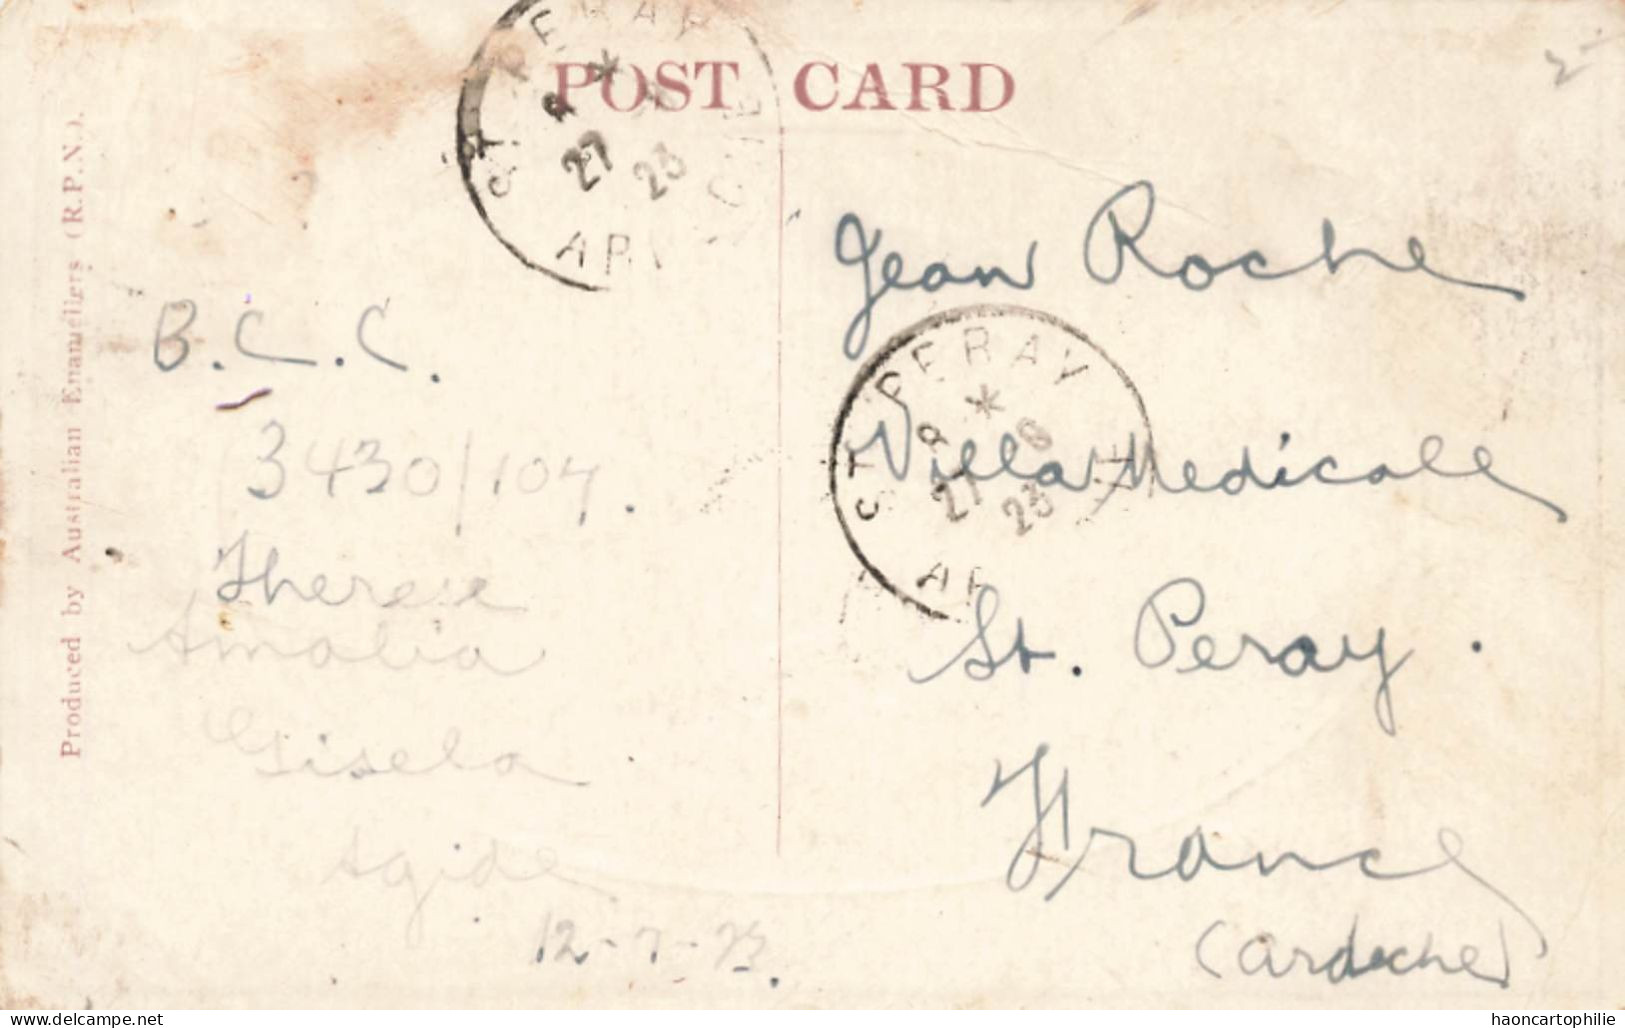 POST CARD
ST PERAY
* 
27 23
2
Produced by Australian Enamellers (R.P.N.).
B.C.C.
3430/104.
Therese
Amalia
Gisela
Agide
12-7-23.
Jean Roche
ST PERAY
*
8
27 23
Villa Medicale
St. Peray.
France
(Ardeche)
www.delcampe.net
haoncartophilie